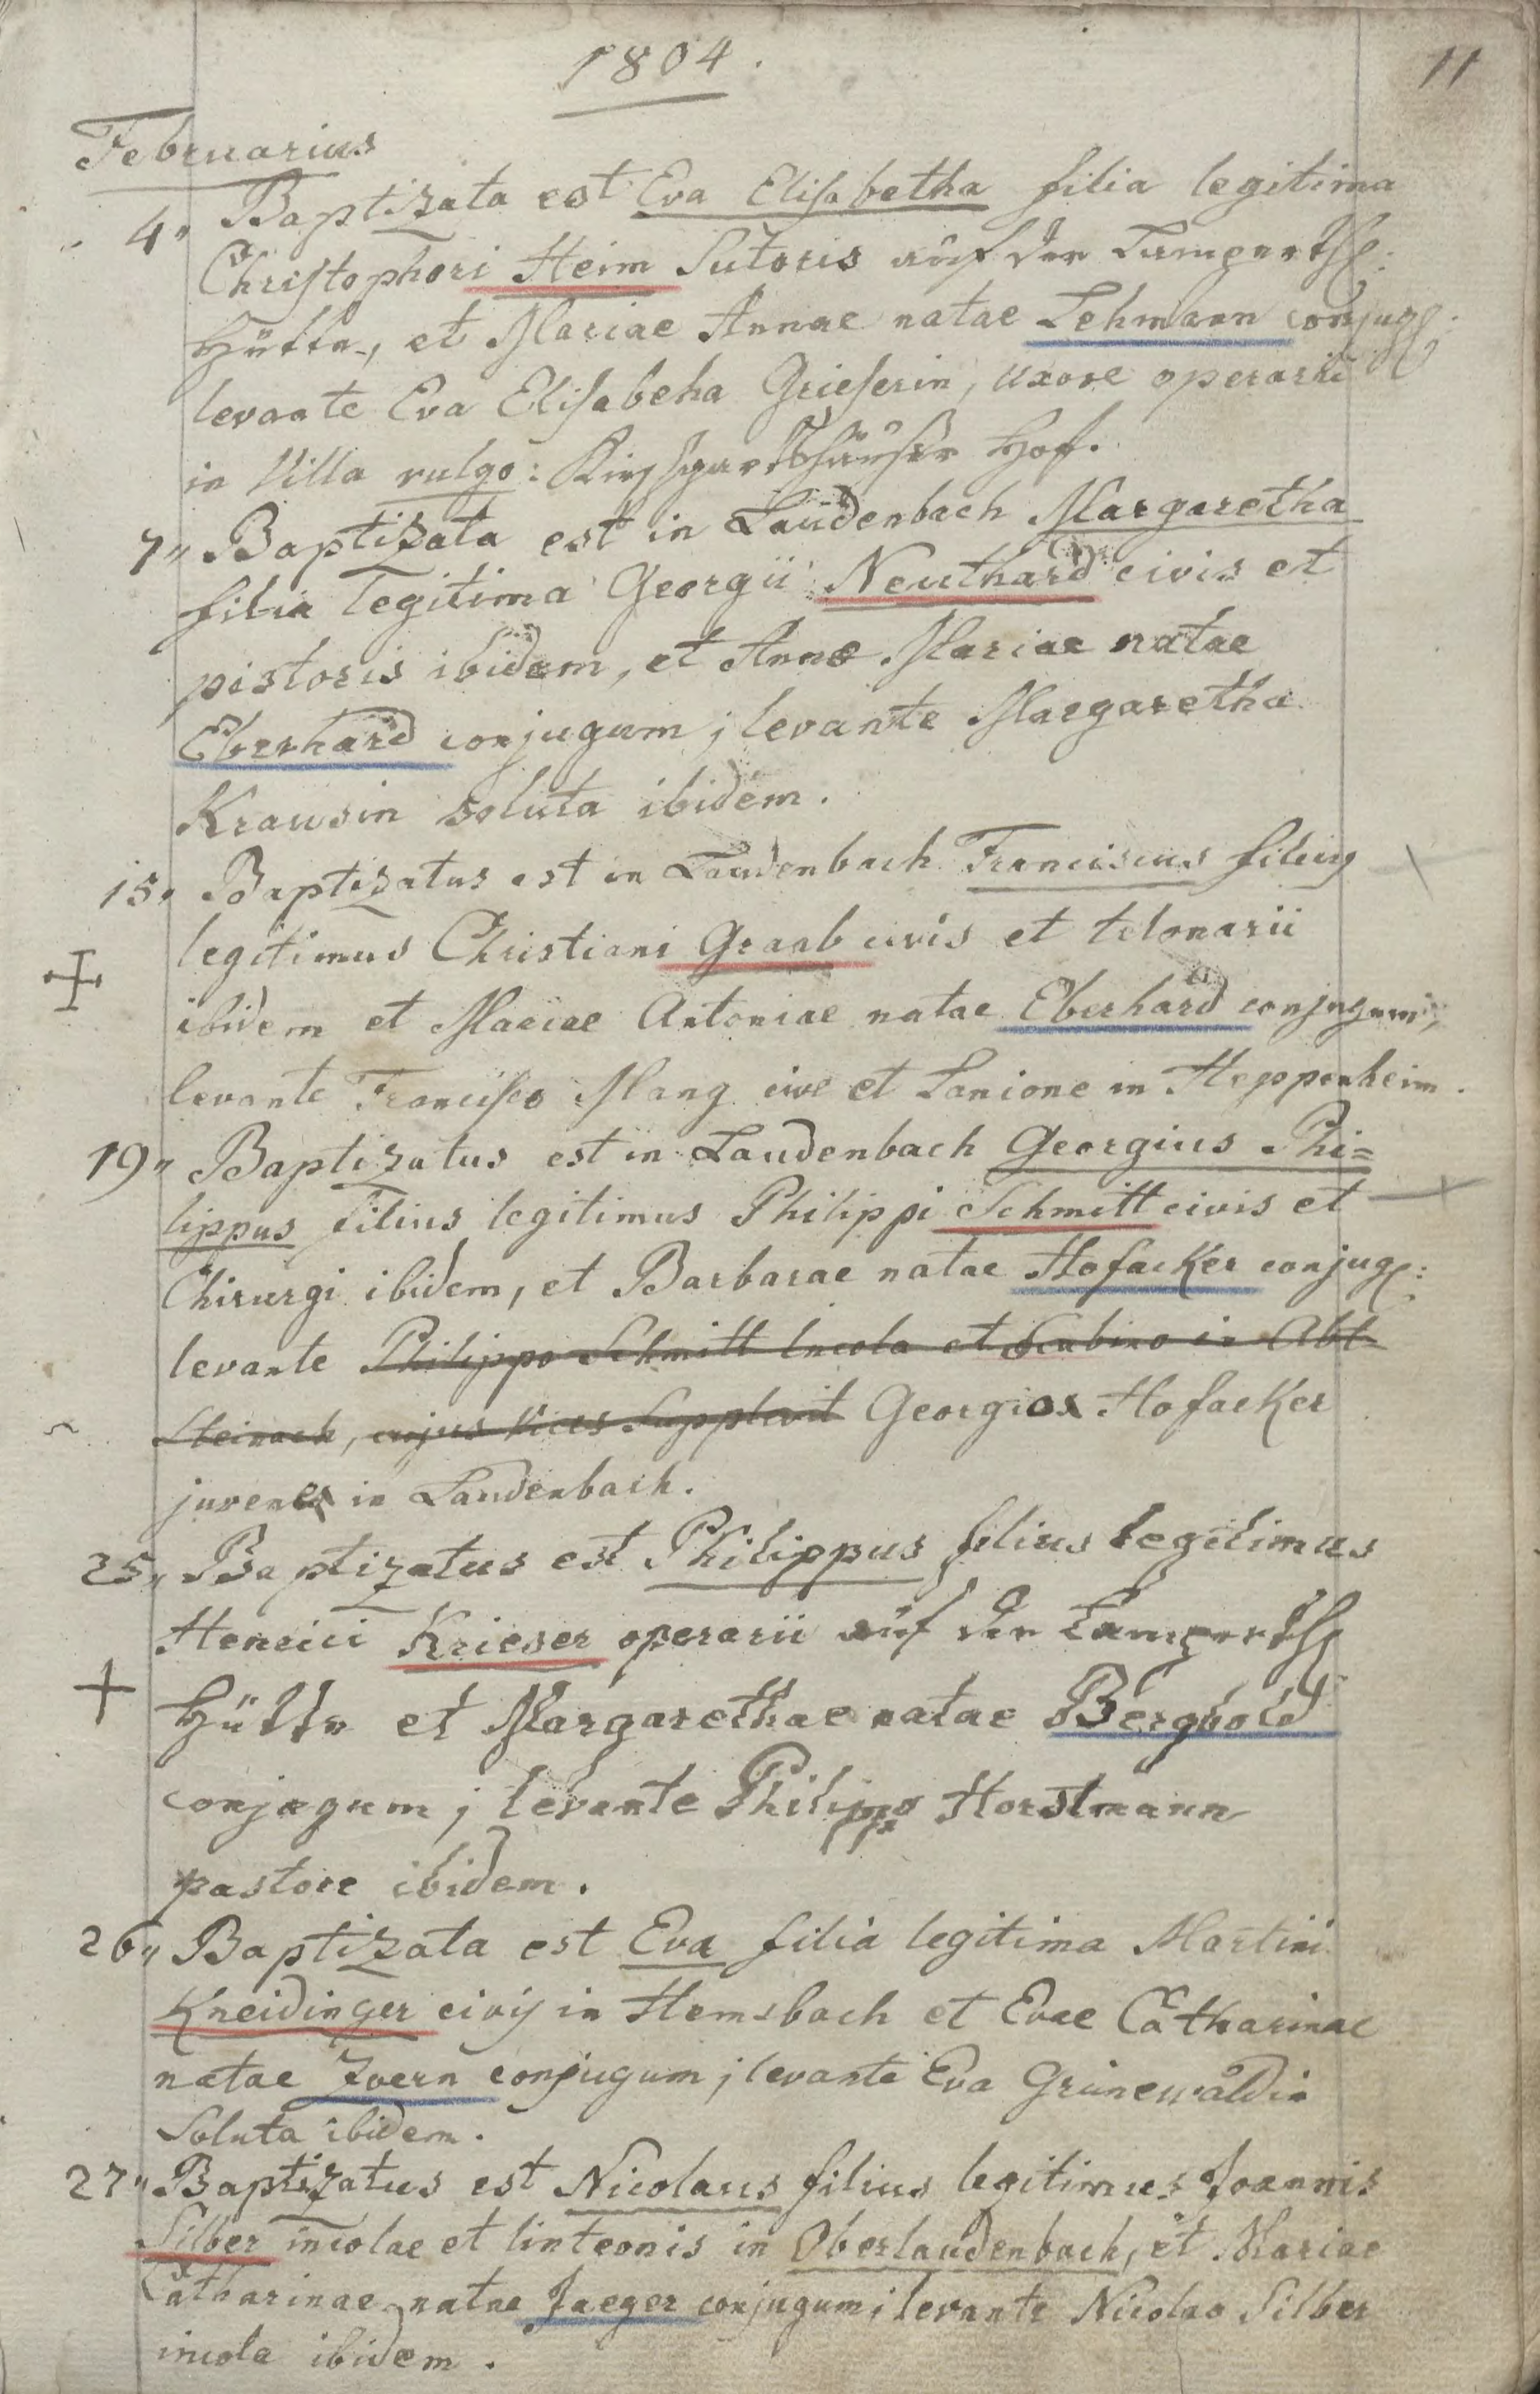 1804.
11
Februarius
4„ Baptizata est Eva Elisabetha filia legitima
Christophori Heim Sutoris auf der Lamperths:
Hütte, et Mariae Annae natae Lehmann conjug:
levante Eva Elisabeha Grieserin, uxore operarii
in Villa vulgo: Kirschgartshäuser Hof.
7„ Baptizata est in Laudenbach Margaretha
filia legitima Georgii Neuthard civis et
pistoris ibidem, et Annae Mariae natae
Eberhard conjugum; levante Margaretha
Krausin soluta ibidem.
15„ Baptizatus est in Laudenbach Franciscus filius
legitimus Christiani Graab civis et telonarii
ibidem et Mariae Antoniae natae Eberhard conjugum,
levante Francisco Mang cive et Lanione in Heppenheim.
19„ Baptizatus est in Laudenbach Georgius Phi=
lippus filius legitimus Philippi Schmitt civis et
Chirurgi ibidem, et Barbarae natae Hofacker conjug:
levante Philippo Schmitt Incola et Scabino in Abt
Steinach, cujus vices supplevit Georgio Hofacker
juvene in Laudenbach.
25„ Baptizatus est Philippus filius legitimus
Henrici Krieser operarii auf der Lamperths
Hütte et Margarethae natae Bergbold
conjugum; levante Philippo Horstmann
pastore ibidem.
26„ Baptizata est Eva filia legitima Martini
Kneidinger civis in Hemsbach et Evae Catharinae
natae Zvern conjugum; levante Eva Grünewäldin
Soluta ibidem.
27„ Baptizatus est Nicolaus filius legitimus Joannis
Silber incolae et linteonis in Oberlaudenbach, et Mariae
Catharinae natae Jaeger conjugum; levante Nicolao Silber
incola ibidem.